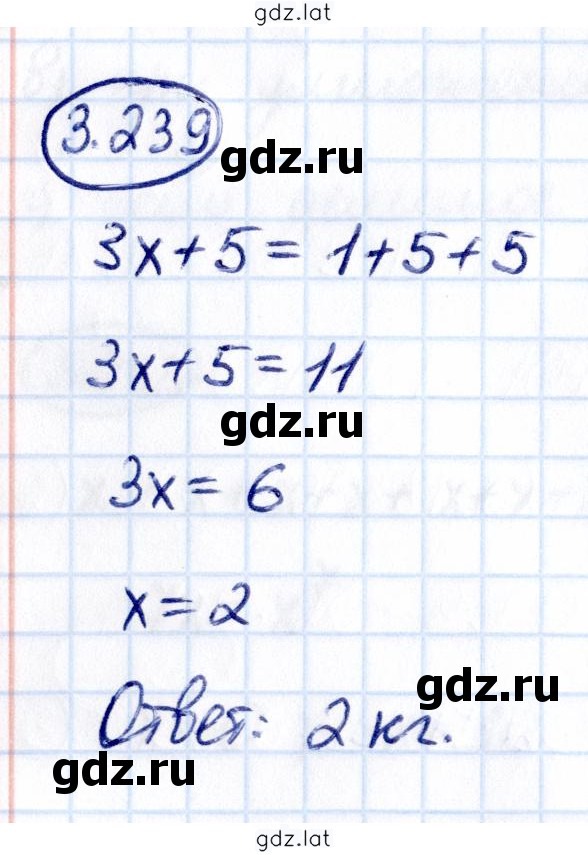 gdz.lat
3.239
gdz.ru
3x+5=1+5+5
3x+5=11
gdz.ru
3x=6
x=2
gdz.ru
Ответ: 2 кг.
gdz.ru
gdz.lat